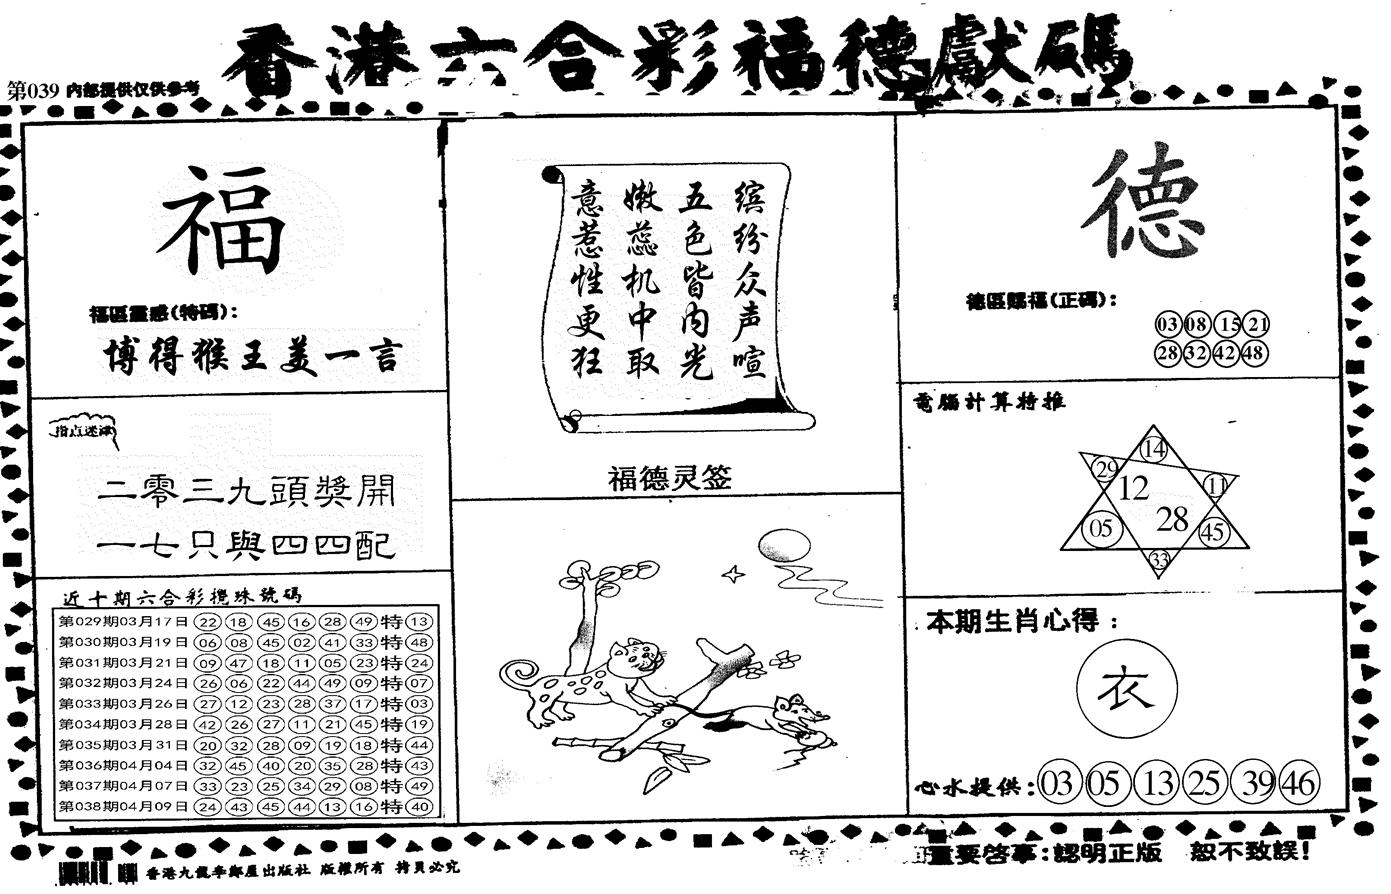 香港六合彩福德獻碼
第039 内部提供仅供參考
福
福區靈感(特碼):
博得猴王美一言
指点迷津
二零三九頭獎開
一七只與四四配
近十期六合彩攪珠號碼
第029期03月17日 22 18 45 16 28 49 特 13
第030期03月19日 06 08 45 02 41 33 特 48
第031期03月21日 09 47 18 11 05 23 特 24
第032期03月24日 26 06 22 44 49 09 特 07
第033期03月26日 27 12 23 28 37 17 特 03
第034期03月28日 42 26 27 11 21 45 特 19
第035期03月31日 20 32 28 09 19 18 特 44
第036期04月04日 32 45 40 20 35 28 特 43
第037期04月07日 33 23 25 34 29 08 特 49
第038期04月09日 24 43 45 44 13 16 特 40
缤纷众声喧
五色皆内光
嫩蕊机中取
意惹性更狂
福德灵签
德
德區賜福(正碼):
03 08 15 21
28 32 42 48
電腦計算特推
14
29 11
12
28
05 45
33
本期生肖心得:
衣
心水提供: 03 05 13 25 39 46
香港九龍李鄭屋出版社 版權所有 拷貝必究
重要啓事:認明正版 恕不致誤!